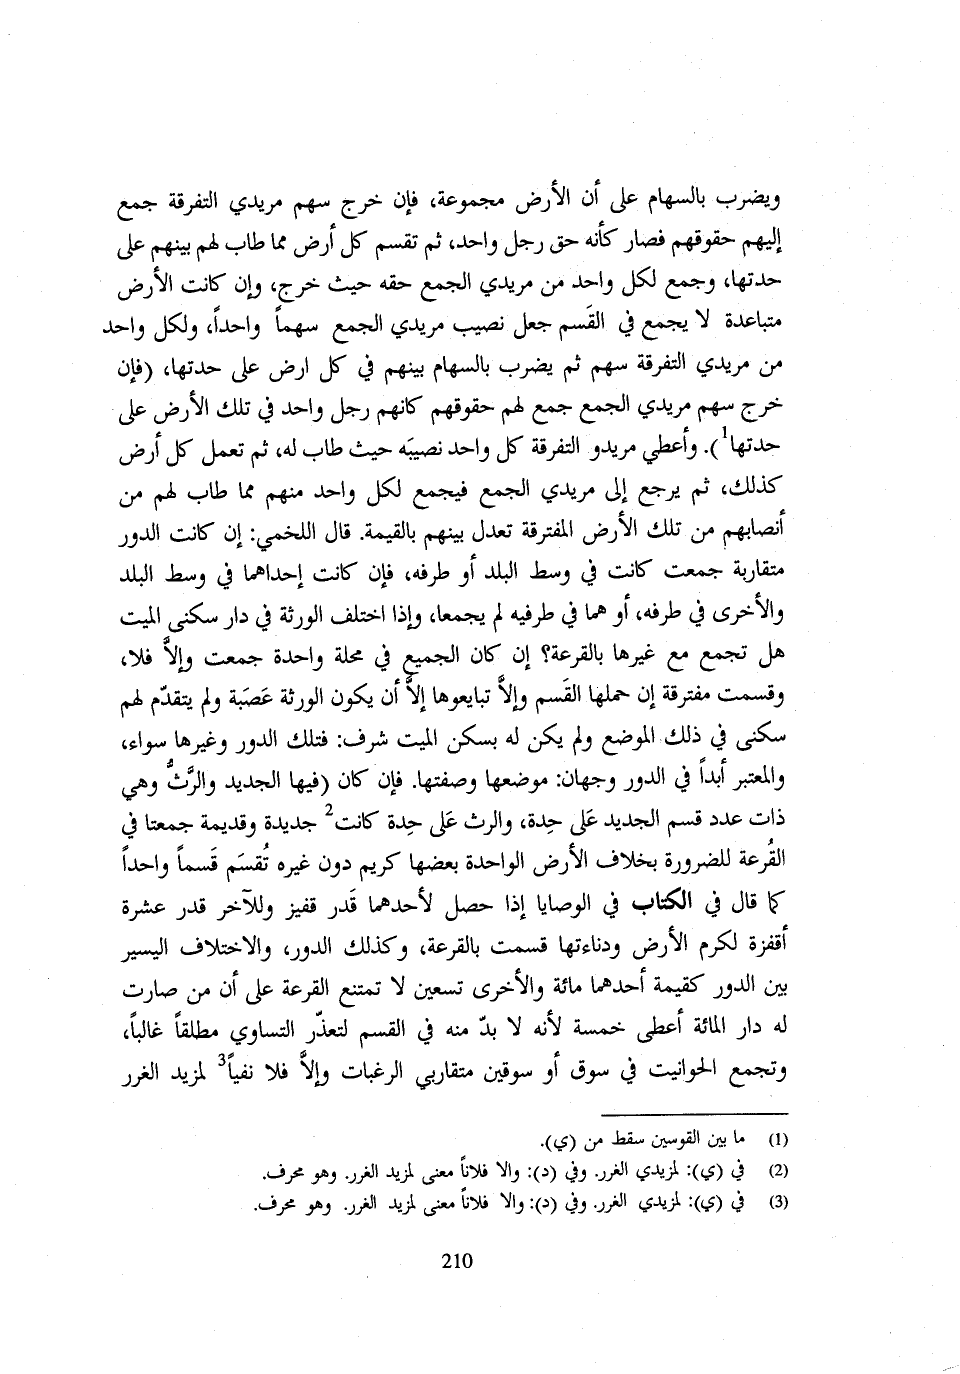 ويضرب بالسهام على أن الأرض مجموعة، فإن خرج سهم مريدي التفرقة جمع
إليهم حقوقهم فصار كأنه حق رجل واحد، ثم تقسم كل أرض مما طاب لهم بينهم على
حدتها، وجمع لكل واحد من مريدي الجمع حقه حيث خرج، وإن كانت الأرض
متباعدة لا يجمع في القَسم جعل نصيب مريدي الجمع سهماً واحداً، ولكل واحد
من مريدي التفرقة سهم ثم يضرب بالسهام بينهم في كل ارض على حدتها، (فإن
خرج سهم مريدي الجمع جمع لهم حقوقهم كانهم رجل واحد في تلك الأرض على
حدتها1). وأعطي مريدو التفرقة كل واحد نصيبَه حيث طاب له، ثم تعمل كل أرض
كذلك، ثم يرجع إلى مريدي الجمع فيجمع لكل واحد منهم مما طاب لهم من
أنصابهم من تلك الأرض المفترقة تعدل بينهم بالقيمة. قال اللخمي: إن كانت الدور
متقاربة جمعت كانت في وسط البلد أو طرفه، فإن كانت إحداهما في وسط البلد
والأخرى في طرفه، أو هما في طرفيه لم يجمعا، وإذا اختلف الورثة في دار سكنى الميت
هل تجمع مع غيرها بالقرعة؟ إن كان الجميع في محلة واحدة جمعت وإلاَّ فلا،
وقسمت مفترقة إن حملها القَسم وإلاَّ تبايعوها إلاَّ أن يكون الورثة عَصَبة ولم يتقدّم لهم
سكنى في ذلك الموضع ولم يكن له بسكن الميت شرف: فتلك الدور وغيرها سواء،
والمعتبر أبداً في الدور وجهان: موضعها وصفتها. فإن كان (فيها الجديد والرَّثُّ وهي
ذات عدد قسم الجديد عَلى حِدة، والرث عَلى حِدة كانت2 جديدة وقديمة جمعتا في
القُرعة للضرورة بخلاف الأرض الواحدة بعضها كريم دون غيره تُقسَم قَسماً واحداً
كما قال في الكتاب في الوصايا إذا حصل لأحدهما قَدر قفيز وللآخر قدر عشرة
أقفزة لكرم الأرض ودناءتها قسمت بالقرعة، وكذلك الدور، والاختلاف اليسير
بين الدور كقيمة أحدهما مائة والأخرى تسعين لا تمتنع القرعة على أن من صارت
له دار المائة أعطى خمسة لأنه لا بدّ منه في القسم لتعذّر التساوي مطلقاً غالباً،
وتجمع الحوانيت في سوق أو سوقين متقاربي الرغبات وإلاَّ فلا نفياً3 لمزيد الغرر
(1) ما بين القوسين سقط من (ي).
(2) في (ي): لمزيدي الغرر. وفي (د): والا فلاناً معنى لمزيد الغرر. وهو محرف.
(3) في (ي): لمزيدي الغرر. وفي (د): والا فلاناً معنى لمزيد الغرر. وهو محرف.
210